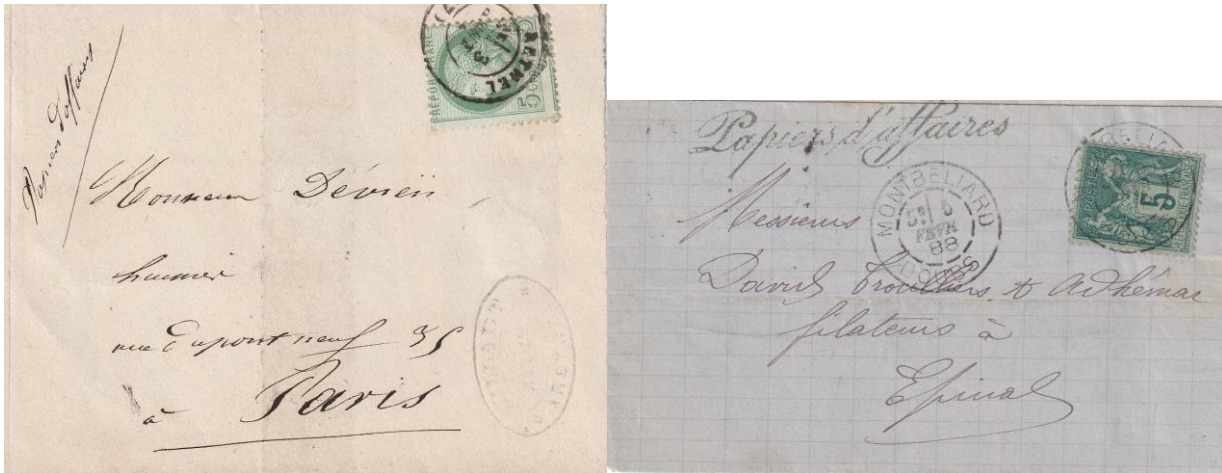 Papiers d'affaires
RETHEL
REPUB FRANC
5
Monsieur Dévien,
huissier
rue du pont neuf 35
à Paris
Papiers d'affaires
MONTBELIARD
6
FEVR
88
DOUBS
POSTES
5
Messieurs
David, Troullier & Adhémar
filateurs à
Epinal